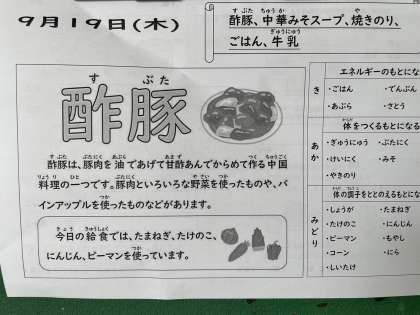 9月19日(木)
酢豚、中華みそスープ、焼きのり、
ごはん、牛乳
酢豚
酢豚は、豚肉を油であげて甘酢あんでからめて作る中国
料理の一つです。豚肉といろいろな野菜を使ったものや、パ
インアップルを使ったものなどがあります。
今日の給食では、たまねぎ、たけのこ、
にんじん、ピーマンを使っています。
エネルギーのもとにな
き
・ごはん ・でんぷん
・あぶら ・さとう
体をつくるもとになる
あか
・ぎゅうにゅう ・ぶたにく
・けいにく ・みそ
・やきのり
体の調子をととのえるもとにな
みどり
・しょうが ・たまねぎ
・たけのこ ・にんじん
・ピーマン ・もやし
・コーン ・にら
・しいたけ